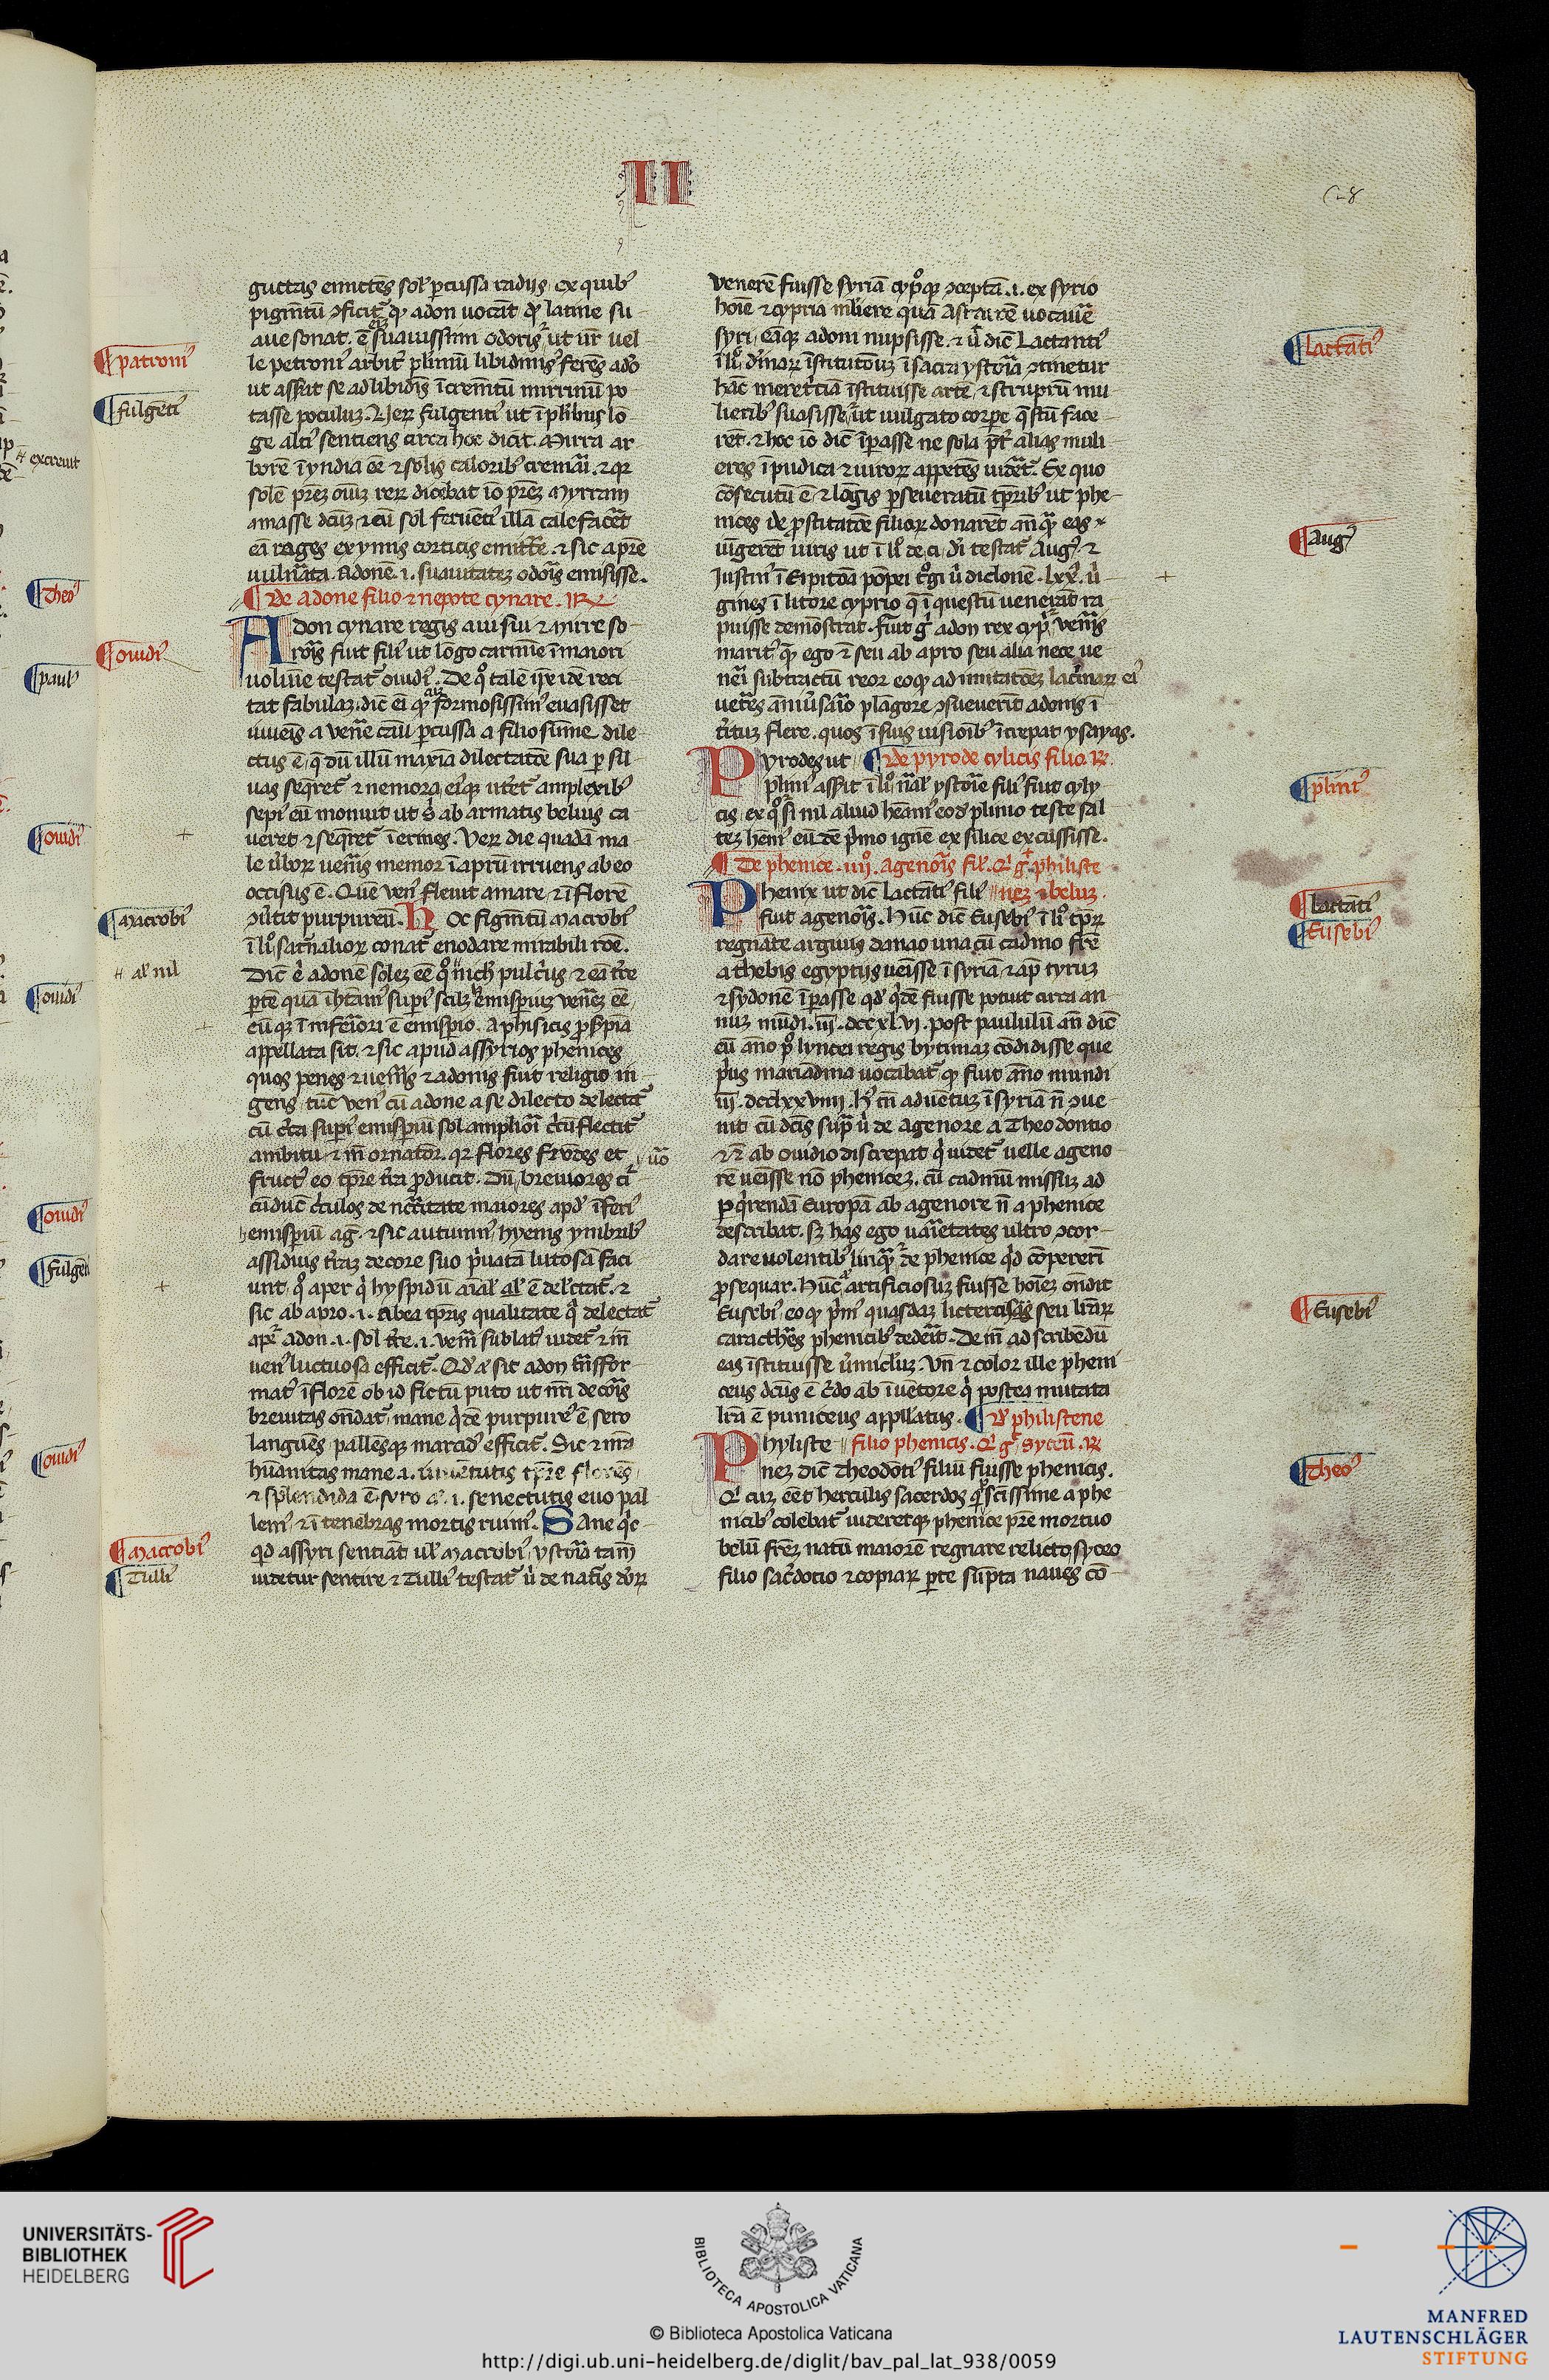 II
28
guttas emittēs sol᷒ p̄cussa radijs, ex quib᷒
pigm̄tū ꝯficit᷑ qđ adon uocāt qđ latine su
aue sonat. ē eīz suauissimi odoris, ut ur̄ uel
le petroni᷒ arbit᷑ pl̓imū libidinis ferēs adō
ut assūat se ad libidīs īcrem̄tū mirrinū po
tasse poculuz. Ueꝝ fulgenti᷒ ut ī pl̓ibus lo
ge alti᷒ sentiens circa hoc dicit. Mirra ar
borē ī yndia eē ⁊ solis calorib᷒ cremāi. ⁊ q̄
solē prēz oīuz reꝝ dicebāt iō prēz Myrram
amasse dc̄uz, ⁊ cū sol feruēti᷒ illā calefacēt
eā rages ex ymis corticis emitte. ⁊ sic a prē
uuln̄ata Adonē .i. suauitatez odōis emisisse.
De adone filio ⁊ nepote cynare. R
Adon cynare regis aui sui ⁊ mirre so
rōis fuit fili᷒ ut lōgo carmīe ī maiori
uolūīe testat᷑ ouidi᷒. De q̊ talē ip̄e idē reci
tat fabulaz, dic̄ eī q̄ cuz formosissim᷒ euasisset
iuueis a venē cāu p̄cussa a filio sūme dile
ctus ē, q̄ dū illū maxīa dilectatōe sua p sil
uas seq̄ret᷑ ⁊ nemora, eīq̄ ut̄et᷑ amplexib᷒
sepi᷒ eū monuit ut s̓ ab armatis beluis ca
ueret ⁊ seq̄ret᷑ īermes. Veꝝ die quadā ma
le illoꝝ uen̄is memor ī aprū irruens ab eo
occisus ē. Quē ven᷒ fleuit amare, ⁊ ī florē
ꝯūtit purpureū. Hoc figm̄tū macrobi᷒
ī lī̊ sat̓nalioꝝ conat᷑ enodare mirabili rōe.
Dic̄ ē adonē solez eē q̊ nich̄ pulcr̓us ⁊ eā t̄re
ꝑtē quā ihītam᷒ sup̄i᷒ scilz emisp̄iuz venēz eē
cūq̄ ī inferiori ē emisp̄io. a phisicis p̄s̓pina
appellata sit. ⁊ sic apud assyrios phenices
quos penes ⁊ ven̄is ⁊ adonis fuit religio in
gens, tūc ven᷒ cū adone a se dilecto delectat᷑
cū c̄rta sup̄i᷒ emisp̄iū sol amplioi c̄rcūflectit᷑
ambitu, ⁊ in̄ ornatior. q̄ flores frōdes et
fruct᷒ eo tp̄re t̄ra p̄ducit. Dū uō breuiores cir
cūduc̄ c̄rculos de nēcc̄itate maiores apd̓ īferi᷒
emisp̄iū ag̓. ⁊ sic autumi᷒ hyemis ymbrib᷒
assiduis t̄raz decore suo pr̓uatā lutosā faci
unt, q̊ aper q̓ hyspidū aīal᷒ al᷒ ē delectat᷑. ⁊
sic ab apro .i. ab ea tp̄ris qualitate q̓ delectat᷑
ap̄r adon .i. sol t̄re .i. vem̄i sublat᷒ uidet᷑ ⁊ in̄
uen᷒ luctuosa efficit᷑. Qd᷒ aūt sit adon trāsfor
mat᷒ ī florē ob id fictū puto ut nr̄i decōis
breuitas ondat᷑, mane q̓dē purpure᷒ ē, sero
languēs pallēsq̄ marcid᷒ efficit᷑. Sic ⁊ nrā
hūanitas mane .i. iuuētutis tp̄re florēs
⁊ splendida ē, sero aūt .i. senectutis euo pal
lem᷒, ⁊ ī tenebras mortis ruim᷒. Sane q̓c
qd assyri sentiāt uel Macrobi᷒, ystōia tam̄
uidetur sentire ⁊ Tulli᷒ testat᷑ ū de natīs dōꝝ
venerē fuisse syriā cyp̊q̄ ꝯceptā .i. ex syrio
hoīe ⁊ cypria m̄liere quā Astarcē uocauē
syri, eāq̄ adoni nupsisse. ⁊ ū dic̄ Lactanti᷒
ī lī̊ dīnaꝝ īstitutōuz ī sacra ystōia ꝯtinetur
hāc meretriciā īstituisse artē, ⁊ struprū mu
lierib᷒ suasisse, ut uulgato corpe q̄stū face
rēt. ⁊ hoc iō dic̄ īpasse ne sola pt̄ alias muli
eres īpudica ⁊ uiroꝝ appetēs uidēt᷑. Ex quo
cōsecutū ē ⁊ lōgis p̄seueratū tp̄rib᷒ ut phe
nices de p̄stitutōe filiaꝝ donarēt anq̄ eas
iūgerēt uiris ut ī lī̊ de ci. dī testat᷑ Aug᷒. ⁊
Justin᷒ ī Epitōa pōpei t̓gi ū didonē. lxx. ū
gines ī litore cyprio q̄ ī questū uenerāt ra
puisse demōstrat. Fuit g̓ adon rex cypri ven̄is
marit᷒ quē ego ⁊ seu ab apro seu alia nece ue
neri subtractū reor eoq̄ ad imitatōez lacr̓imaꝝ ei᷒
uetes anniūsāio plāgore ꝯsueuerit adonis ī
t̓ituz flere. quos ī suis uisioīb᷒ īcrepat ysayas.
Pyrodes ut De pyrode cylicis filio R
plini᷒ assūit ī lī̊ n̄al᷒ ystōie fili᷒ fuit cyly
cis, ex q̊ si nil aliud hēam᷒ eod᷒ plinio teste sal
tez hēm᷒ eū dē p̓mo ignē ex silice excussisse.
De phenice .iiij̊. agenōis fil᷒. Q̓ g̓. philiste
Phenix ut dic̄ Lactāti᷒ fili᷒ nez ⁊ beluz
fuit agenōis. Hūc dic̄ Eusebi᷒ ī lī̊ tp̄ꝝ
regnāte argiuis danao una cū cadmo frē
a thebis egyptijs ueisse ī syriā ⁊ ap̄ tyruz
⁊ sydonē īpasse, qd̓ q̓dē fuisse potuit circa an
nuz mūdi .iij̄. dccxlvi. Post paululū aūt dic̄
eū anno p̊ lyncei regis bytiniaz cōdidisse que
p̓us mariādina uocabat᷑ qđ fuit āno mundi
iij̄. dcclxxviiij. H̓ tn̄ aduētuz ī syriā n̄ ꝯue
nit cū dc̄is sup̄ ū de agenore a Theodontio
⁊ ab ouidio discrepat q̓ uidet᷑ uelle ageno
rē ueisse nō phenicez. cū cadmū missuz ad
p̄q̓rendā Europā ab agenore n̄ a phenice
describat. Sz has ego uarietates ultro ꝯcor
dare uolentib᷒ linq̄, de phenice qd̓ cōpererī
p̄sequar. Hūc aūt artificiosuz fuisse hoīez ondit
Eusebi᷒, eo qđ p̓m᷒ quasdaz lictercīs seu lr̄aꝝ
caractheīs phenicib᷒ dedēit. Dein̄ ad scribēdū
eas īstituisse ūmicluz. Vn̄ ⁊ color ille pheni
ceus dc̄us ē c̄rdo ab īuētore q̓ postea mutata
lr̄a ē puniceus appellatus. De philistene
Phyliste filio phenicis. Q̓ g̓. Syceū. R
nez dic̄ Theodōti᷒ filiū fuisse phenicis.
Q̓ cuz eēt herculis sacerdos q̄ sc̄issime a phe
nicib᷒ colebat᷑ uideretq̄ phenice prē mortuo
belū frēz natū maiorē regnare relicto syceo
filio sac̓dotio ⁊ copiaꝝ pte sup̄ta naues cō
patroni᷒
fulgēti᷒
excreuit
Theo᷒
ouidi᷒
paul᷒
ouidi᷒
Macrobi᷒
al᷒ nil
ouidi᷒
uō
ouidi᷒
fulgē
ouidi᷒
Macrobi᷒
Tulli᷒
Lactāti᷒
Aug᷒
plini᷒
Lactāti᷒
Eusebi᷒
Eusebi᷒
Theo᷒
UNIVERSITÄTS-
BIBLIOTHEK
HEIDELBERG
BIBLIOTECA APOSTOLICA VATICANA
© Biblioteca Apostolica Vaticana
http://digi.ub.uni-heidelberg.de/diglit/bav_pal_lat_938/0059
MANFRED
LAUTENSCHLÄGER
STIFTUNG